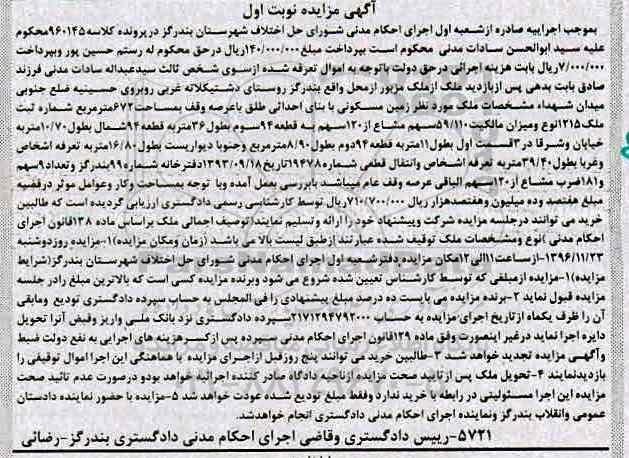 آگهی مزایده نوبت اول
بموجب اجراییه صادره ازشعبه اول اجرای احکام مدنی شورای حل اختلاف شهرستان بندرگز درپرونده کلاسه ۹۶۰۱۴۵محکوم
علیه سید ابوالحسن سادات مدنی محکوم است بپرداخت مبلغ۱۴۰/۰۰۰/۰۰۰ریال درحق محکوم له رستم حسین پور وبپرداخت
۷/۰۰۰/۰۰۰ریال بابت هزینه اجرائی درحق دولت باتوجه به اموال تعرفه شده ازسوی شخص ثالث سیدعبداله سادات مدنی فرزند
صادق بابت بدهی پس ازبازدید ملک ازملک مزبور ازمحل واقع بندرگز روستای دشتیکلاته غربی روبروی حسینیه ضلع جنوبی
میدان شهداء مشخصات ملک مورد نظر زمین مسکونی با بنای احداثی طلق باعرصه وقف بمساحت۶۷۲مترمربع شماره ثبت
ملک۱۲۱۵نوع ومیزان مالکیت۵۹/۱۱۰سهم مشاع از۱۲۰سهم به قطعه۹۴سوم بطول۳۶متربه قطعه۹۴شمال بطول۱۰/۷۰متربه
خیابان وشرقا در۳قسمت اول بطول۱۱متربه قطعه۹۴دوم بطول۸/۹۰مترمربع وجنوبا دیواریست بطول۱۶/۸۰متربه تعرفه اشخاص
وغربا بطول۳۹/۴۰متربه تعرفه اشخاص وانتقال قطعی شماره۱۹۴۷۸تاریخ۱۳۹۳/۰۹/۱۸دفترخانه شماره۹۹بندرگز وتعداد۹سهم
و۱۸۱ضرب مشاع از۱۲۰سهم الباقی عرصه وقف عام میباشد بابررسی بعمل آمده وبا توجه بمساحت وکار وعوامل موثر درقضیه
مبلغ هفتصد وده میلیون وهفتصدهزار ریال ۷۱۰/۷۰۰/۰۰۰ریال توسط کارشناسی رسمی دادگستری ارزیابی گردیده است که طالبین
خرید می توانند درجلسه مزایده شرکت وپیشنهاد خود را ارائه وتسلیم نمایند(توصیف اجمالی ملک براساس ماده ۱۳۸قانون اجرای
احکام مدنی )نوع ومشخصات ملک توقیف شده عبارتند ازطبق لیست بالا می باشد (زمان ومکان مزایده)۱-مزایده روزدوشنبه
۱۳۹۶/۱۱/۲۳-ازساعت۱۱الی۱۲مکان مزایده دفترشعبه اول اجرای احکام مدنی شورای حل اختلاف شهرستان بندرگز(شرایط
مزایده)۱-مزایده ازمبلغی که توسط کارشناس تعیین شده شروع می شود وبرنده مزایده کسی است که بالاترین مبلغ رادر جلسه
مزایده قبول نماید ۲-برنده مزایده می بایست ده درصد مبلغ پیشنهادی را فی المجلس به حساب سپرده دادگستری تودیع ومابقی
آن را ظرف یکماه ازتاریخ اجرای مزایده به حساب ۲۱۷۱۲۹۴۷۹۲۰۰۰سپرده دادگستری نزد بانک ملی واریز وقبض آنرا تحویل
دایره اجرا نماید درغیر اینصورت وفق ماده ۱۲۹قانون اجرای احکام مدنی سپرده پس ازکسرهزینه های اجرایی به نفع دولت ضبط
وآگهی مزایده تجدید خواهد شد ۳-طالبین خرید می توانند پنج روزقبل ازاجرای مزایده با هماهنگی این اجرا اموال توقیفی را
بازدیدنمایند ۴-تحویل ملک پس ازتایید صحت مزایده ازناحیه دادگاه صادر کننده اجرائیه خواهد بودو درصورت عدم تائید صحت
مزایده این اجرا مسئولیتی در رابطه با خرید ندارد وفقط مبلغ تودیع شده عودت خواهد شد ۵-مزایده با حضور نماینده دادستان
عمومی وانقلاب بندرگز ونماینده اجرای احکام مدنی دادگستری انجام خواهدشد.
۵۷۲۱-رییس دادگستری وقاضی اجرای احکام مدنی دادگستری بندرگز-رضائی